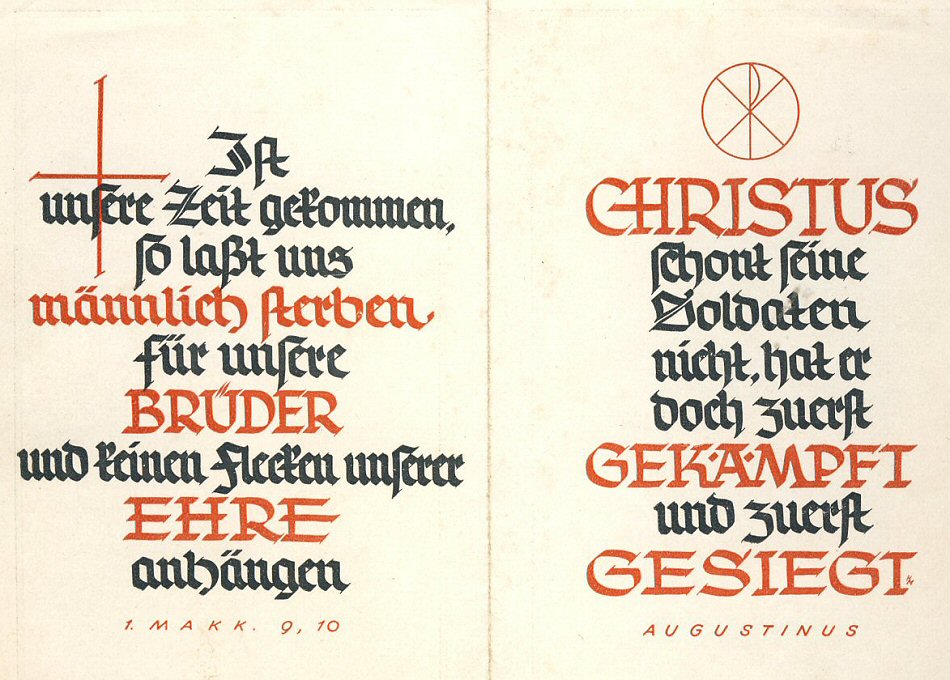 Ist
unsere Zeit gekommen,
so laßt uns
männlich sterben
für unsere
BRÜDER
und keinen Flecken unserer
EHRE
anhängen
1. MAKK. 9, 10
CHRISTUS
schont seine
Soldaten
nicht, hat er
doch zuerst
GEKÄMPFT
und zuerst
GESIEGT
AUGUSTINUS